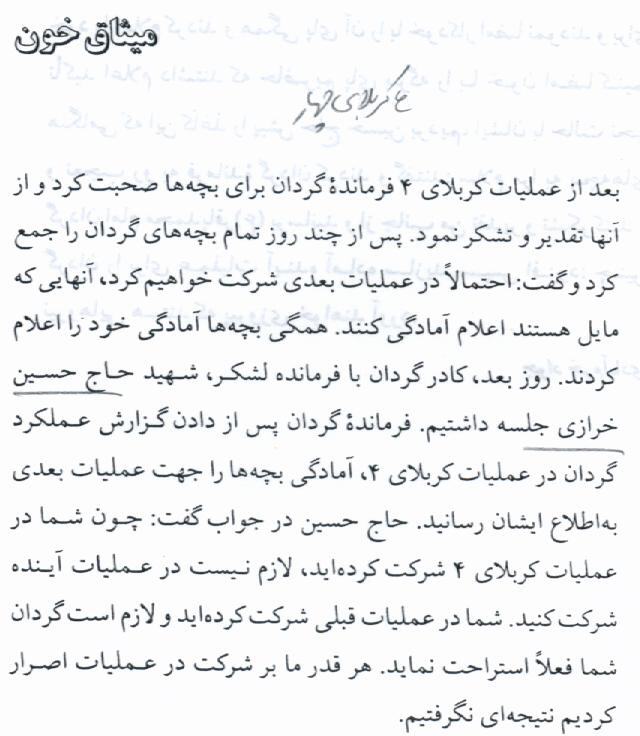 میثاق خون
ع کربلای چهار
بعد از عملیات کربلای ۴ فرماندهٔ گردان برای بچه‌ها صحبت کرد و از
آنها تقدیر و تشکر نمود. پس از چند روز تمام بچه‌های گردان را جمع
کرد و گفت: احتمالاً در عملیات بعدی شرکت خواهیم کرد، آنهایی که
مایل هستند اعلام آمادگی کنند. همگی بچه‌ها آمادگی خود را اعلام
کردند. روز بعد، کادر گردان با فرمانده لشکر، شهید حاج حسین
خرازی جلسه داشتیم. فرماندهٔ گردان پس از دادن گزارش عملکرد
گردان در عملیات کربلای ۴، آمادگی بچه‌ها را جهت عملیات بعدی
به‌اطلاع ایشان رسانید. حاج حسین در جواب گفت: چون شما در
عملیات کربلای ۴ شرکت کرده‌اید، لازم نیست در عملیات آینده
شرکت کنید. شما در عملیات قبلی شرکت کرده‌اید و لازم است گردان
شما فعلاً استراحت نماید. هر قدر ما بر شرکت در عملیات اصرار
کردیم نتیجه‌ای نگرفتیم.